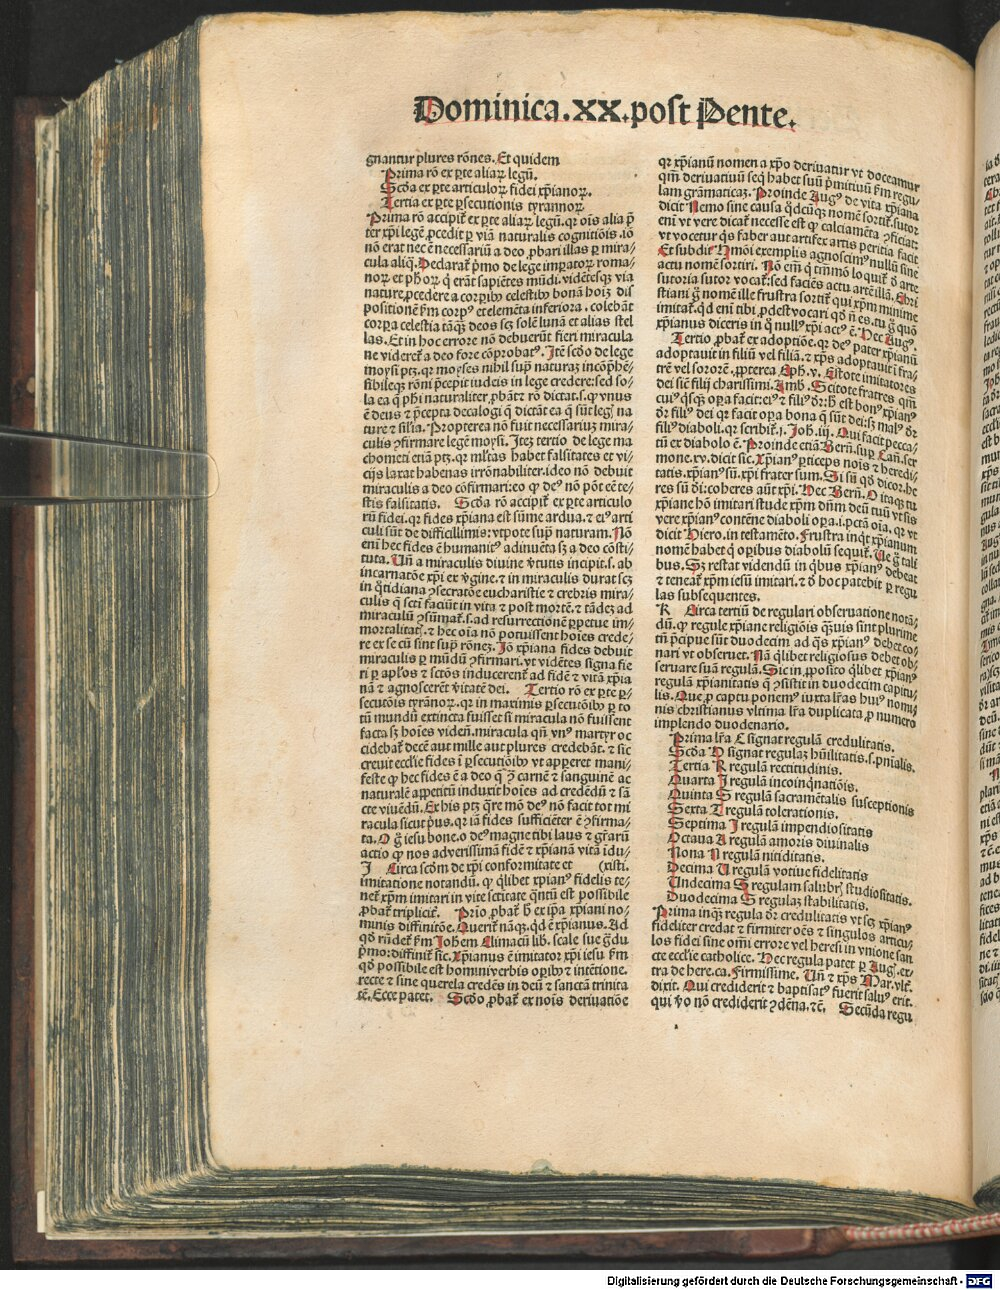 Dominica.XX.post Pente.
gnantur plures rōnes. Et quidem
Prima rō ex ꝑte aliaꝝ legū.
Scd̄a ex ꝑte articuloꝝ fidei xp̄ianoꝝ.
Tertia ex ꝑte ꝑsecutionis tyrannoꝝ
Prima rō accipit̄ ex ꝑte aliaꝝ legū. qꝛ oīs alia p̄
ter xp̄i legē ꝓcedit ꝑ viā naturalis cognitiōis. iō
nō erat nec ē necessariū a deo ꝓbari illas ꝑ mira/
cula aliq̄. Declarat̄ pͥmo de lege imꝑatoꝝ roma/
noꝝ et ph̄oꝝ q̄ erāt sapiētes mūdi. vidētesqꝫ via
nature ꝓcedere a corꝑibꝰ celestibꝰ bonā hoīs dis
positionē ẜm corpꝰ et elemēta inferiora. colebāt
corꝑa celestia tāqꝫ deos scꝫ solē lunā et alias stel
las. Et in hoc errore nō debuerūt fieri miracula
ne viderēt̄ a deo fore cōprobatꝰ. Itē scd̄o de lege
moysi ptꝫ. qꝛ moyses nihil supͣ naturaꝫ incōp̄hē/
sibileqꝫ rōni p̄cepit iudeis in lege credere: sed so/
la ea q̄ ph̄i naturaliter ꝓbāt ⁊ rō dictat. s. qꝙ vnus
ē deus ⁊ p̄cepta decalogi q̄ dictāt ea q̄ sūt legꝭ na
ture ⁊ silia. Propterea nō fuit necessariuꝫ mira/
culis ꝯfirmare legē moysi. Iteꝫ tertio de lege ma
chometi etiā ptꝫ. qꝛ ml̄tas habet falsitates et vi/
cijs laxat habenas irrōnabiliter. ideo nō debuit
miraculis a deo cōfirmari: eo ꝙ deꝰ nō pōt eē te/
stis falsitatis. Scd̄a rō accipit̄ ex ꝑte articulo
rū fidei. qꝛ fides xp̄iana est sūme ardua. ⁊ eiꝰ arti
culi sūt de difficillimis: vtpote supͣ naturam. Nō
enī hec fides ē humanitꝰ adinuēta sꝫ a deo cōsti/
tuta. Vn̄ a miraculis diuine v̓tutis incipit. s. ab
incarnatōe xp̄i ex v̓gine. ⁊ in miraculis durat scꝫ
in q̄tidiana ꝯsecratōe eucharistie ⁊ crebris mira/
culis q̄ sctī faciūt in vita ⁊ post mortē. ⁊ tādeꝫ ad
miraculū ꝯsūmat̄. s. ad resurrectionē ꝑpetue im/
mortalitatꝭ. ⁊ hec oīa nō potuissent hoīes crede/
re ex se cū sint supͣ rōneꝫ. Iō xp̄iana fides debuit
miraculis ꝑ mūdū ꝯfirmari. vt vidētes signa fie
ri ꝑ apl̄os ⁊ sctōs inducerent̄ ad fidē ⁊ vitā xp̄ia
nā ⁊ agnoscerēt v̓itatē dei. Tertio rō ex ꝑte ꝑ/
secutōis tyrānoꝝ. qꝛ in maximis ꝑsecutōibꝰ ꝑ to
tū mundū extincta fuisset si miracula nō fuissent
facta sꝫ hoīes viden̄. miracula qn̄ vnꝰ martyr oc
cidebat̄ decē aut mille aut plures credebāt. ⁊ sic
creuit eccl̄ie fides ī ꝑsecutōibꝰ vt apꝑeret mani/
feste ꝙ hec fides ē a deo q̄ ꝯͣ carnē ⁊ sanguinē ac
naturalē appetitū induxit hoīes ad credēdū ⁊ sā
cte viuēdū. Ex his ptꝫ q̄re mō deꝰ nō facit tot mi
racula sicut pͥus. qꝛ iā fides sufficiēter ē ꝯfirma/
ta. O ḡ iesu bone. o deꝰ magne tibi laus ⁊ gr̄arū
actio ꝙ nos ad verissimā fidē ⁊ xp̄ianā vitā idu/
I Circa scd̄m de xp̄i conformitate et (xisti.
imitatione notandū. ꝙ q̄libet xp̄ianꝰ fidelis te/
net̄ xp̄m imitari in vite scitate q̄ntū est possibile
ꝓbat̄ triplicit̄. Prīo ꝓbat̄ h̄ ex ip̄a xp̄iani no/
minis diffinitōe. Querit̄ nāqꝫ. qd̄ ē xp̄ianus. Ad
qd̄ rn̄det̄ ẜm Joh̄em Climacū lib. scale sue ḡdu
pͥmo: diffinit̄ sic. Xp̄ianus ē imitator xp̄i iesu ẜm
qd̄ possibile est homini verbis oꝑibꝰ ⁊ intētione.
recte ⁊ sine querela credēs in deū ⁊ sanctā trinita
tē. Ecce patet. Scd̄o ꝓbat̄ ex nois deriuatiōe
qꝛ xp̄ianū nomen a xp̄o deriuatur vt doceamur
qm̄ deriuatiuū seqͥ habet suū pͥmitiuū ẜm regu/
lam grāmaticaꝫ. Proinde Augꝰ de vita xp̄iana
dicit Nemo sine causa qd̄cūqꝫ nomē sortit̄. sutor
enī vt vere dicat̄ necesse est ꝙ calciamēta ꝯficiat:
vt vocetur q̄s faber aut artifex artis peritia facit
Et subdit Hmōi exemplis agnoscimꝰ nullū sine
actu nomē sortiri. Nō em̄ q̄ tmmō loquit̄ ꝺ arte
sutoria sutor vocat̄: sed faciēs actu artē illā. Chri
stiani ḡ nomē ille frustra sortit̄ qui xp̄m minime
imitat̄. qd̄ eni tibi ꝓdest vocari qd̄ nō es. tu ḡ quō
xp̄ianus diceris in q̄ nullꝰ xp̄i actꝰ ē. Hec Augꝰ.
Tertio ꝓbat̄ ex adoptiōe. qꝛ deꝰ pater xp̄ianū
adoptauit in filiū vel filiā. ⁊ xp̄s adoptauit ī fra/
trē vel sororē. ꝓpterea Eph. v. Estote imitatores
dei sic̄ filij charissimi. Amb. Scitote fratres qm̄
cuiꝰ qͥsqꝫ oꝑa facit: eiꝰ ⁊ filiꝰ dr̄: h̄ est bonꝰ xp̄ianꝰ
dr̄ filiꝰ dei qꝛ facit oꝑa bona q̄ sūt dei: sꝫ malꝰ dr̄
filiꝰ diaboli. qꝛ scribit̄. j. Joh. iij. Qui facit pecca/
tū ex diabolo ē. Proinde etiā Bern̄. suꝑ Can̄. ser
mone. xv. dicit sic. Xp̄ianꝰ ꝑticeps nois ⁊ heredi/
tatis. xp̄ianꝰ sū. xp̄i frater sum. Si sū qd̄ dicor. he
res sū dei: coheres aūt xp̄i. Hec Bern̄. O itaqꝫ tu
xp̄iane hō imitari stude xp̄m dn̄m deū tuū vt sis
vere xp̄ianꝰ contēne diaboli oꝑa. i. pctā oīa. qꝛ vt
dicit Hiero. in testamēto. Frustra inqͥt xp̄ianum
nomē habet q̄ oꝑibus diabolū sequit̄. Ve ḡ tali
bus. Sꝫ restat videndū in qͥbus xp̄ianꝰ debeat
⁊ teneat̄ xp̄m iesū imitari. ⁊ ꝺ hoc patebit ꝑ regu
las subsequentes.
K Circa tertiū de regulari obseruatione notā/
dū. ꝙ regule xp̄iane religiōis q̄uis sint plurime
tn̄ p̄cipue sūt duodecim ad q̄s xp̄ianꝰ debet co/
nari vt obseruet. Nā q̄libet religiosus debet ob/
seruare suā regulā. Sic in ꝓposito q̄libet xp̄ianꝰ
regulā xp̄ianitatis q̄ ꝯsistit in duodecim capitu/
lis. Que ꝓ captu ponemꝰ iuxta lr̄as huiꝰ nomi/
nis christianus vltima lr̄a duplicata ꝓ numero
implendo duodenario.
Prima lr̄a C signat regulā credulitatis.
Scd̄a H signat regulaꝫ hūilitatis. s. pnīalis.
Tertia R regulā rectitudinis.
Quarta I regulā incoinqͥnatiōis.
Quinta S regulā sacramētalis susceptionis
Sexta T regulā tolerationis.
Septima I regulā impendiositatis
Octaua A regulā amoris diuinalis
Nona N regulā nitiditatis.
Decima V regulā votiue fidelitatis
Undecima S regulam salubrꝭ studiositatis.
Duodecima S regulaꝫ stabilitatis.
Prima inqͣꝫ regula dr̄ credulitatis vt scꝫ xp̄ianꝰ
fideliter credat ⁊ firmiter oēs ⁊ singulos articu/
los fidei sine omī errore vel heresi in vnione san
cte eccl̄ie catholice. Hec regula patet ꝑ Augꝰ. ex/
tra de here. ca. Firmissime. Vn̄ ⁊ xp̄s Mar. vlt̄.
dixit. Qui crediderit ⁊ baptisatꝰ fuerit saluꝰ erit.
qui v̓o nō crediderit ꝯdēna. ⁊c̄. Secūda regu
Digitalisierung gefördert durch die Deutsche Forschungsgemeinschaft - DFG